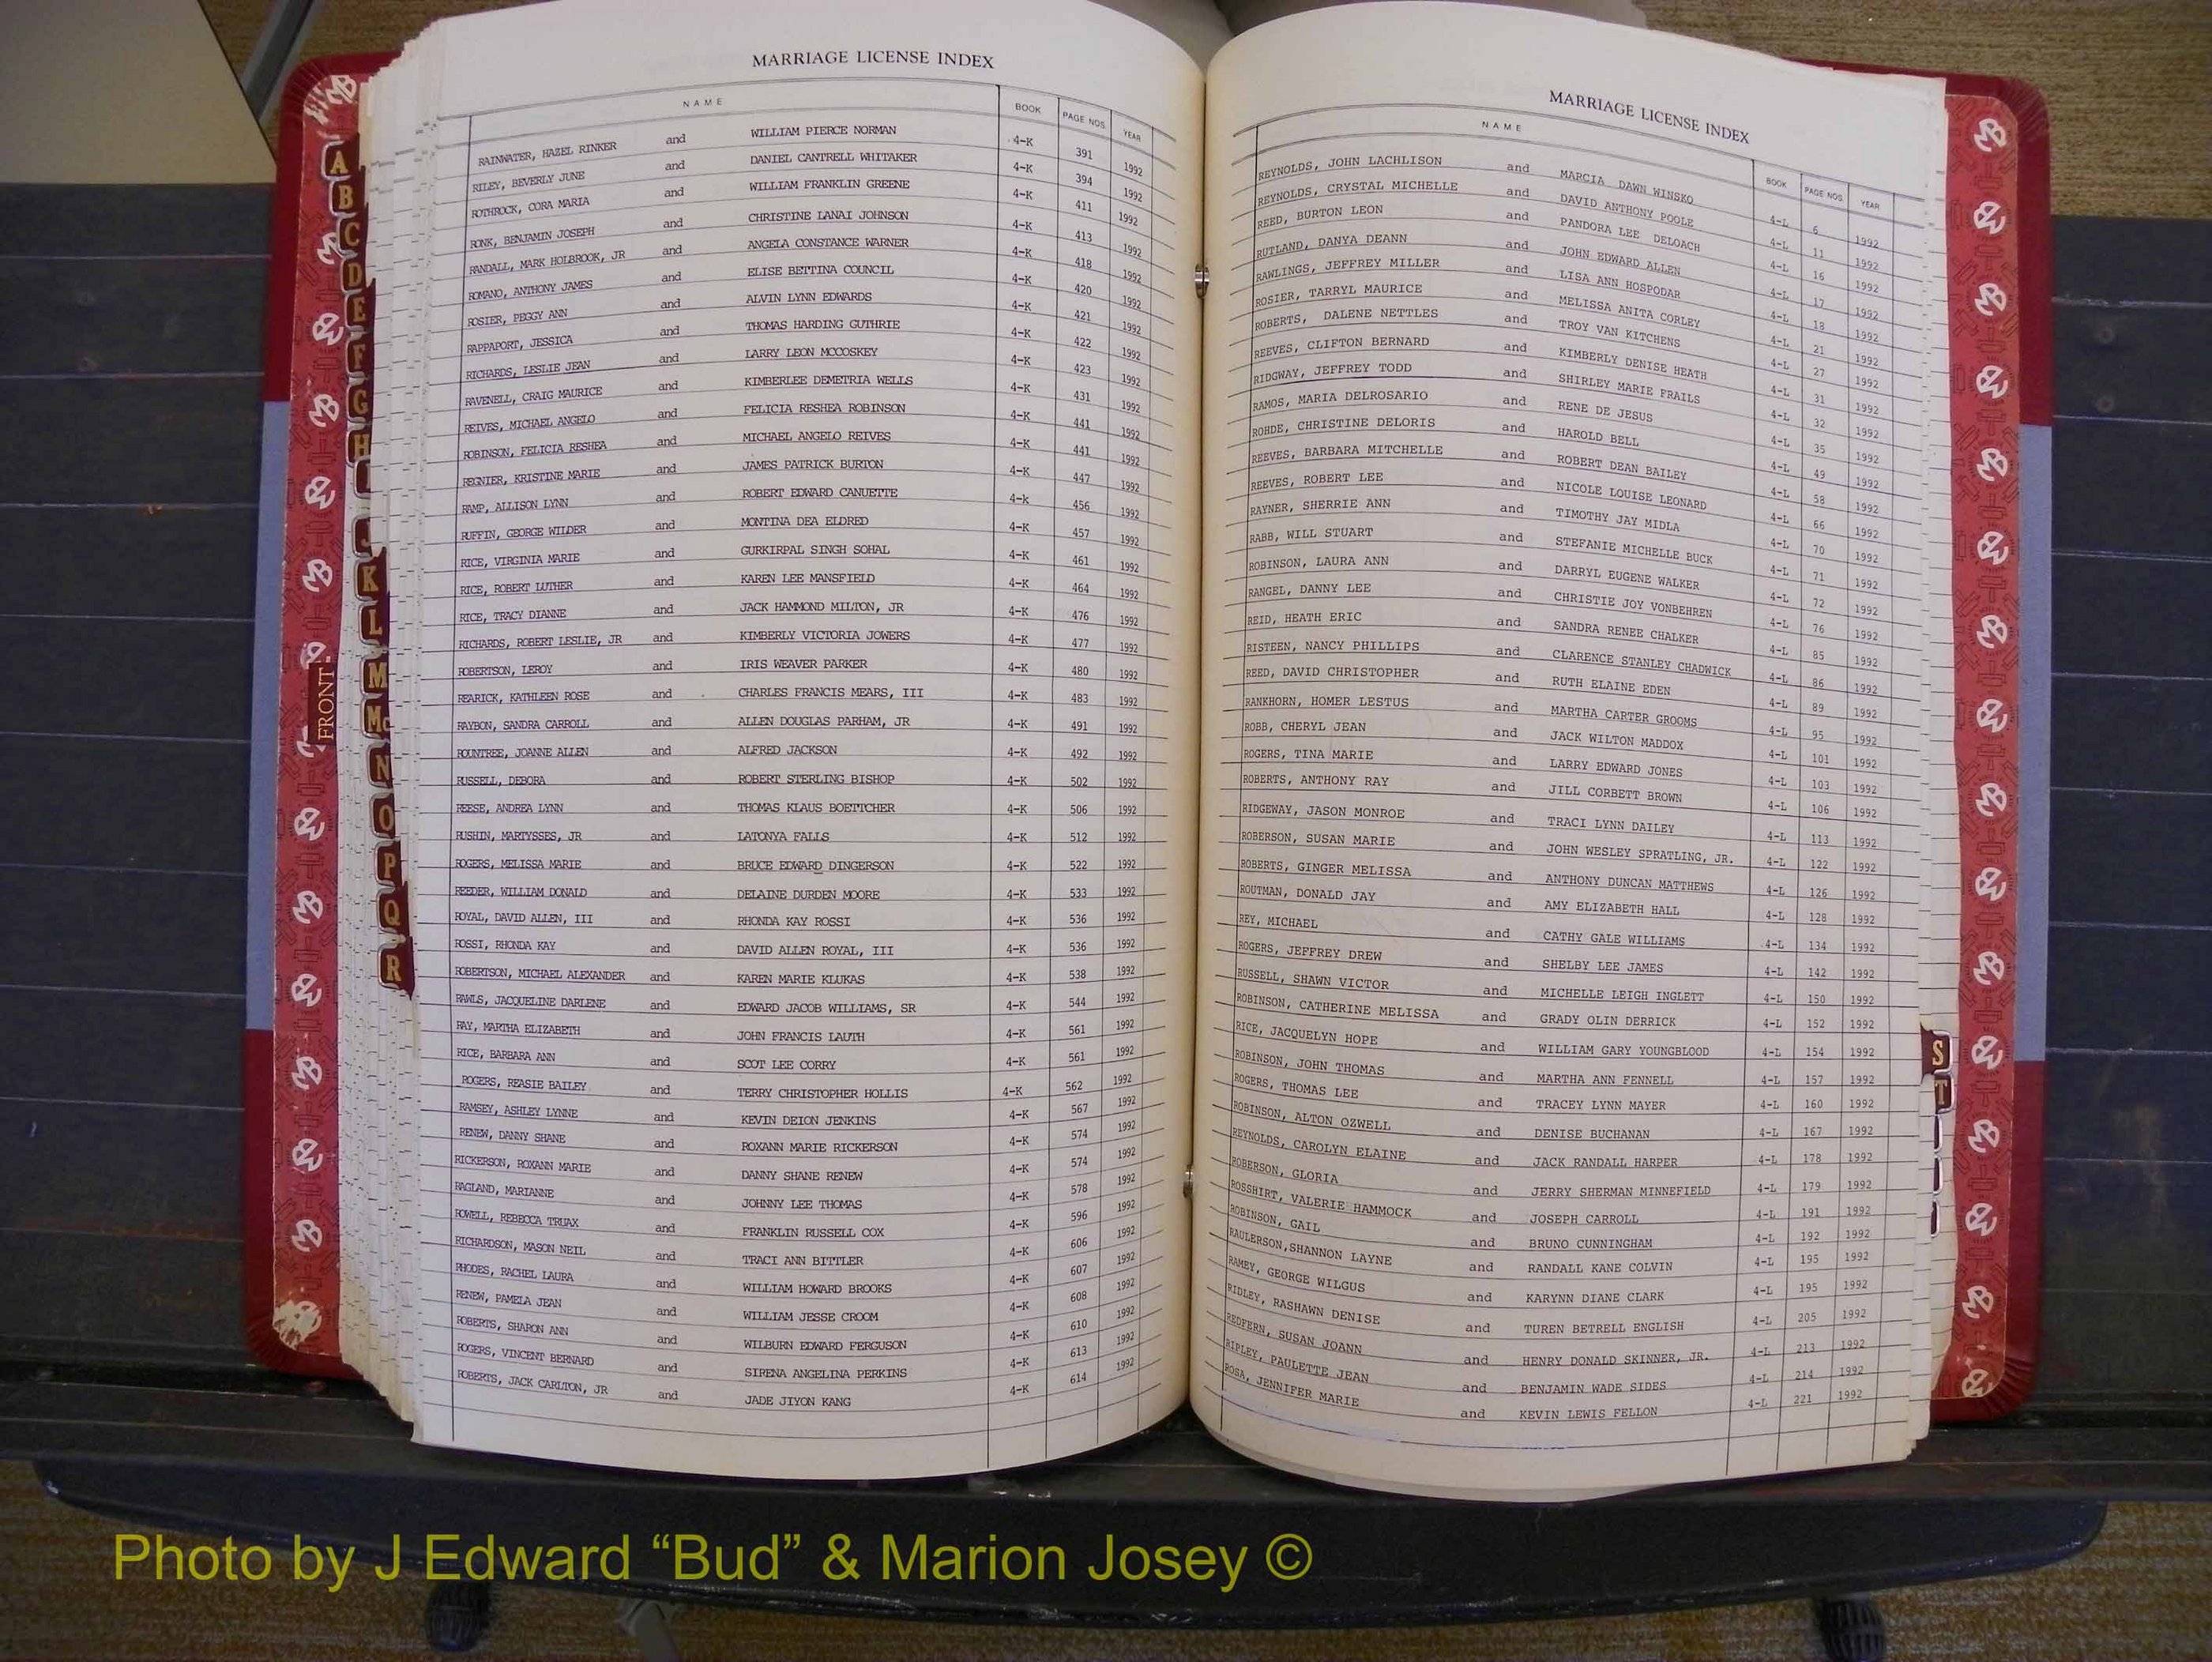 MARRIAGE LICENSE INDEX
NAME BOOK PAGE NOS. YEAR
RAINWATER, HAZEL RINKER and WILLIAM PIERCE NORMAN 4-K 391 1992
RILEY, BEVERLY JUNE and DANIEL CANTRELL WHITAKER 4-K 394 1992
ROTHROCK, CORA MARIA and WILLIAM FRANKLIN GREENE 4-K 411 1992
RONK, BENJAMIN JOSEPH and CHRISTINE LANAI JOHNSON 4-K 413 1992
RANDALL, MARK HOLBROOK, JR and ANGELA CONSTANCE WARNER 4-K 418 1992
ROMANO, ANTHONY JAMES and ELISE BETTINA COUNCIL 4-K 420 1992
ROSIER, PEGGY ANN and ALVIN LYNN EDWARDS 4-K 421 1992
RAPPAPORT, JESSICA and THOMAS HARDING GUTHRIE 4-K 422 1992
RICHARDS, LESLIE JEAN and LARRY LEON MCCOSKEY 4-K 423 1992
RAVENELL, CRAIG MAURICE and KIMBERLEE DEMETRIA WELLS 4-K 431 1992
REIVES, MICHAEL ANGELO and FELICIA RESHEA ROBINSON 4-K 441 1992
ROBINSON, FELICIA RESHEA and MICHAEL ANGELO REIVES 4-K 441 1992
REGNIER, KRISTINE MARIE and JAMES PATRICK BURTON 4-K 447 1992
RAMP, ALLISON LYNN and ROBERT EDWARD CANUETTE 4-k 456 1992
RUFFIN, GEORGE WILDER and MONTINA DEA ELDRED 4-K 457 1992
RICE, VIRGINIA MARIE and GURKIRPAL SINGH SOHAL 4-K 461 1992
RICE, ROBERT LUTHER and KAREN LEE MANSFIELD 4-K 464 1992
RICE, TRACY DIANNE and JACK HAMMOND MILTON, JR 4-K 476 1992
RICHARDS, ROBERT LESLIE, JR and KIMBERLY VICTORIA JOWERS 4-K 477 1992
ROBERTSON, LEROY and IRIS WEAVER PARKER 4-K 480 1992
REARICK, KATHLEEN ROSE and CHARLES FRANCIS MEARS, III 4-K 483 1992
RAYBON, SANDRA CARROLL and ALLEN DOUGLAS PARHAM, JR 4-K 491 1992
ROUNTREE, JOANNE ALLEN and ALFRED JACKSON 4-K 492 1992
RUSSELL, DEBORA and ROBERT STERLING BISHOP 4-K 502 1992
REESE, ANDREA LYNN and THOMAS KLAUS BOETTCHER 4-K 506 1992
RUSHIN, MARTYSSES, JR and LATONYA FALLS 4-K 512 1992
ROGERS, MELISSA MARIE and BRUCE EDWARD DINGERSON 4-K 522 1992
REEDER, WILLIAM DONALD and DELAINE DURDEN MOORE 4-K 533 1992
ROYAL, DAVID ALLEN, III and RHONDA KAY ROSSI 4-K 536 1992
ROSSI, RHONDA KAY and DAVID ALLEN ROYAL, III 4-K 536 1992
ROBERTSON, MICHAEL ALEXANDER and KAREN MARIE KLUKAS 4-K 538 1992
RAWLS, JACQUELINE DARLENE and EDWARD JACOB WILLIAMS, SR 4-K 544 1992
RAY, MARTHA ELIZABETH and JOHN FRANCIS LAUTH 4-K 561 1992
RICE, BARBARA ANN and SCOT LEE CORRY 4-K 561 1992
ROGERS, REASIE BAILEY and TERRY CHRISTOPHER HOLLIS 4-K 562 1992
RAMSEY, ASHLEY LYNNE and KEVIN DEION JENKINS 4-K 567 1992
RENEW, DANNY SHANE and ROXANN MARIE RICKERSON 4-K 574 1992
RICKERSON, ROXANN MARIE and DANNY SHANE RENEW 4-K 574 1992
RAGLAND, MARIANNE and JOHNNY LEE THOMAS 4-K 578 1992
ROWELL, REBECCA TRUAX and FRANKLIN RUSSELL COX 4-K 596 1992
RICHARDSON, MASON NEIL and TRACI ANN BITTLER 4-K 606 1992
RHODES, RACHEL LAURA and WILLIAM HOWARD BROOKS 4-K 607 1992
RENEW, PAMELA JEAN and WILLIAM JESSE CROOM 4-K 608 1992
ROBERTS, SHARON ANN and WILBURN EDWARD FERGUSON 4-K 610 1992
ROGERS, VINCENT BERNARD and SIRENA ANGELINA PERKINS 4-K 613 1992
ROBERTS, JACK CARLTON, JR and JADE JIYON KANG 4-K 614 1992
MARRIAGE LICENSE INDEX
NAME BOOK PAGE NOS. YEAR
REYNOLDS, JOHN LACHLISON and MARCIA DAWN WINSKO 4-L 6 1992
REYNOLDS, CRYSTAL MICHELLE and DAVID ANTHONY POOLE 4-L 11 1992
REED, BURTON LEON and PANDORA LEE DELOACH 4-L 16 1992
RUTLAND, DANYA DEANN and JOHN EDWARD ALLEN 4-L 17 1992
RAWLINGS, JEFFREY MILLER and LISA ANN HOSPODAR 4-L 18 1992
ROSIER, TARRYL MAURICE and MELISSA ANITA CORLEY 4-L 21 1992
ROBERTS, DALENE NETTLES and TROY VAN KITCHENS 4-L 27 1992
REEVES, CLIFTON BERNARD and KIMBERLY DENISE HEATH 4-L 31 1992
RIDGWAY, JEFFREY TODD and SHIRLEY MARIE FRAILS 4-L 32 1992
RAMOS, MARIA DELROSARIO and RENE DE JESUS 4-L 35 1992
ROHDE, CHRISTINE DELORIS and HAROLD BELL 4-L 49 1992
REEVES, BARBARA MITCHELLE and ROBERT DEAN BAILEY 4-L 58 1992
REEVES, ROBERT LEE and NICOLE LOUISE LEONARD 4-L 66 1992
RAYNER, SHERRIE ANN and TIMOTHY JAY MIDLA 4-L 70 1992
RABB, WILL STUART and STEFANIE MICHELLE BUCK 4-L 71 1992
ROBINSON, LAURA ANN and DARRYL EUGENE WALKER 4-L 72 1992
RANGEL, DANNY LEE and CHRISTIE JOY VONBEHREN 4-L 76 1992
REID, HEATH ERIC and SANDRA RENEE CHALKER 4-L 85 1992
RISTEEN, NANCY PHILLIPS and CLARENCE STANLEY CHADWICK 4-L 86 1992
REED, DAVID CHRISTOPHER and RUTH ELAINE EDEN 4-L 89 1992
RANKHORN, HOMER LESTUS and MARTHA CARTER GROOMS 4-L 95 1992
ROBB, CHERYL JEAN and JACK WILTON MADDOX 4-L 101 1992
ROGERS, TINA MARIE and LARRY EDWARD JONES 4-L 103 1992
ROBERTS, ANTHONY RAY and JILL CORBETT BROWN 4-L 106 1992
RIDGEWAY, JASON MONROE and TRACI LYNN DAILEY 4-L 113 1992
ROBERSON, SUSAN MARIE and JOHN WESLEY SPRATLING, JR. 4-L 122 1992
ROBERTS, GINGER MELISSA and ANTHONY DUNCAN MATTHEWS 4-L 126 1992
ROUTMAN, DONALD JAY and AMY ELIZABETH HALL 4-L 128 1992
REY, MICHAEL and CATHY GALE WILLIAMS 4-L 134 1992
ROGERS, JEFFREY DREW and SHELBY LEE JAMES 4-L 142 1992
RUSSELL, SHAWN VICTOR and MICHELLE LEIGH INGLETT 4-L 150 1992
ROBINSON, CATHERINE MELISSA and GRADY OLIN DERRICK 4-L 152 1992
RICE, JACQUELYN HOPE and WILLIAM GARY YOUNGBLOOD 4-L 154 1992
ROBINSON, JOHN THOMAS and MARTHA ANN FENNELL 4-L 157 1992
ROGERS, THOMAS LEE and TRACEY LYNN MAYER 4-L 160 1992
ROBINSON, ALTON OZWELL and DENISE BUCHANAN 4-L 167 1992
REYNOLDS, CAROLYN ELAINE and JACK RANDALL HARPER 4-L 178 1992
ROBERSON, GLORIA and JERRY SHERMAN MINNEFIELD 4-L 179 1992
ROSSHIRT, VALERIE HAMMOCK and JOSEPH CARROLL 4-L 191 1992
ROBINSON, GAIL and BRUNO CUNNINGHAM 4-L 192 1992
RAULERSON, SHANNON LAYNE and RANDALL KANE COLVIN 4-L 195 1992
RAMEY, GEORGE WILGUS and KARYNN DIANE CLARK 4-L 195 1992
RIDLEY, RASHAWN DENISE and TUREN BETRELL ENGLISH 4-L 205 1992
REDFERN, SUSAN JOANN and HENRY DONALD SKINNER, JR. 4-L 213 1992
RIPLEY, PAULETTE JEAN and BENJAMIN WADE SIDES 4-L 214 1992
ROSA, JENNIFER MARIE and KEVIN LEWIS FELLON 4-L 221 1992
A
B
C
D
E
F
G
H
I
J
K
L
M
Mc
N
O
P
Q
R
FRONT
S
T
Photo by J Edward “Bud” & Marion Josey ©